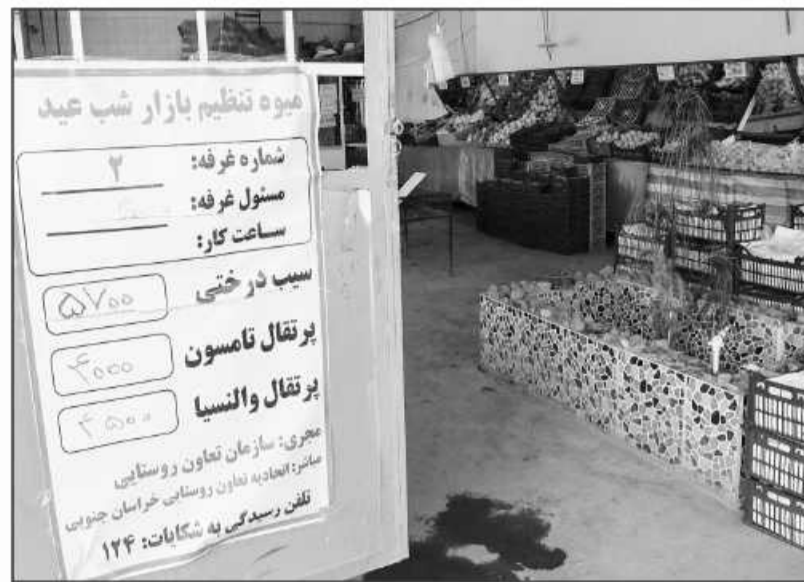 میوه تنظیم بازار شب عید
شماره غرفه: ۲
مسئول غرفه:
ساعت کار:
سیب درختی ۵۷۰۰
پرتقال تامسون ۴۰۰۰
پرتقال والنسیا ۴۵۰۰
مجری: سازمان تعاون روستایی
مباشر: اتحادیه تعاون روستایی خراسان جنوبی
تلفن رسیدگی به شکایات: ۱۲۴